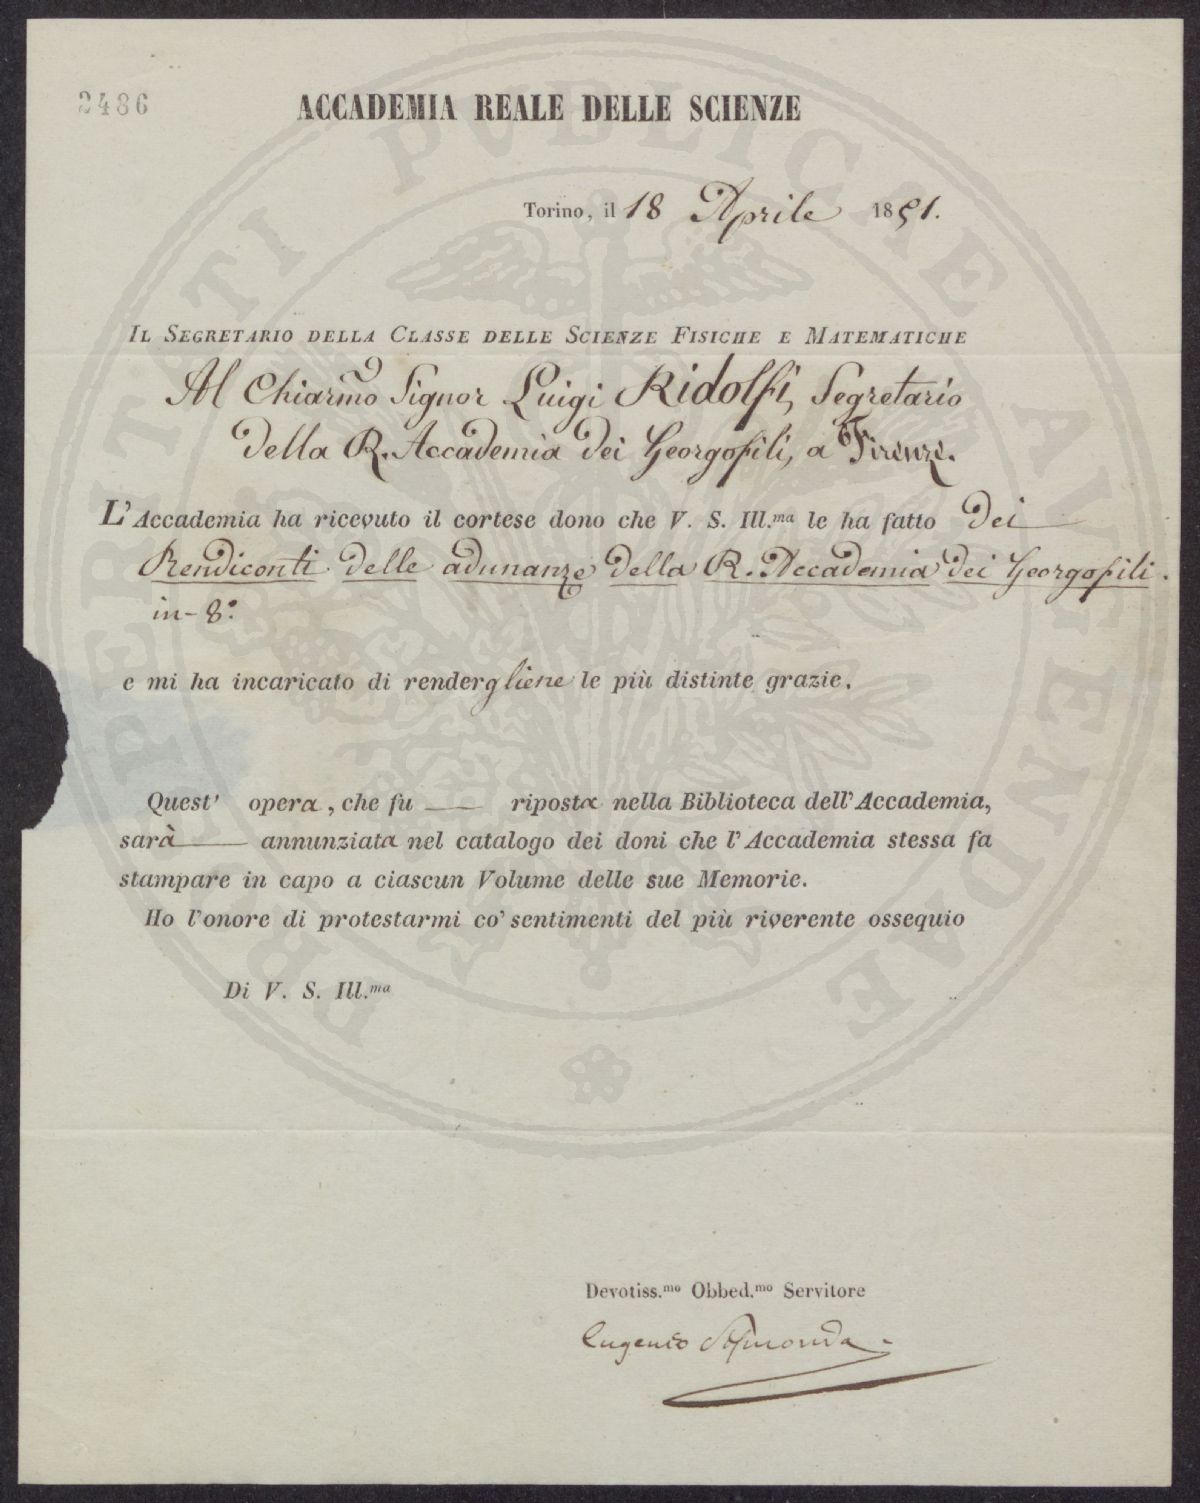 2486
ACCADEMIA REALE DELLE SCIENZE
Torino, il 18 Aprile 1851.
IL SEGRETARIO DELLA CLASSE DELLE SCIENZE FISICHE E MATEMATICHE
Al Chiarmo Signor Luigi Ridolfi, Segretario
della R. Accademia dei Georgofili, a Firenze.
L'Accademia ha ricevuto il cortese dono che V. S. Ill.ma le ha fatto dei
Rendiconti delle adunanze della R. Accademia dei Georgofili.
in-8.°
e mi ha incaricato di rendergliene le più distinte grazie.
Quest' opera, che fu — riposta nella Biblioteca dell'Accademia,
sarà — annunziata nel catalogo dei doni che l'Accademia stessa fa
stampare in capo a ciascun Volume delle sue Memorie.
Ho l'onore di protestarmi co' sentimenti del più riverente ossequio
Di V. S. Ill.ma
Devotiss.mo Obbed.mo Servitore
Eugenio Sismonda
PROSPERITATI PVBLICAE AVGENDAE